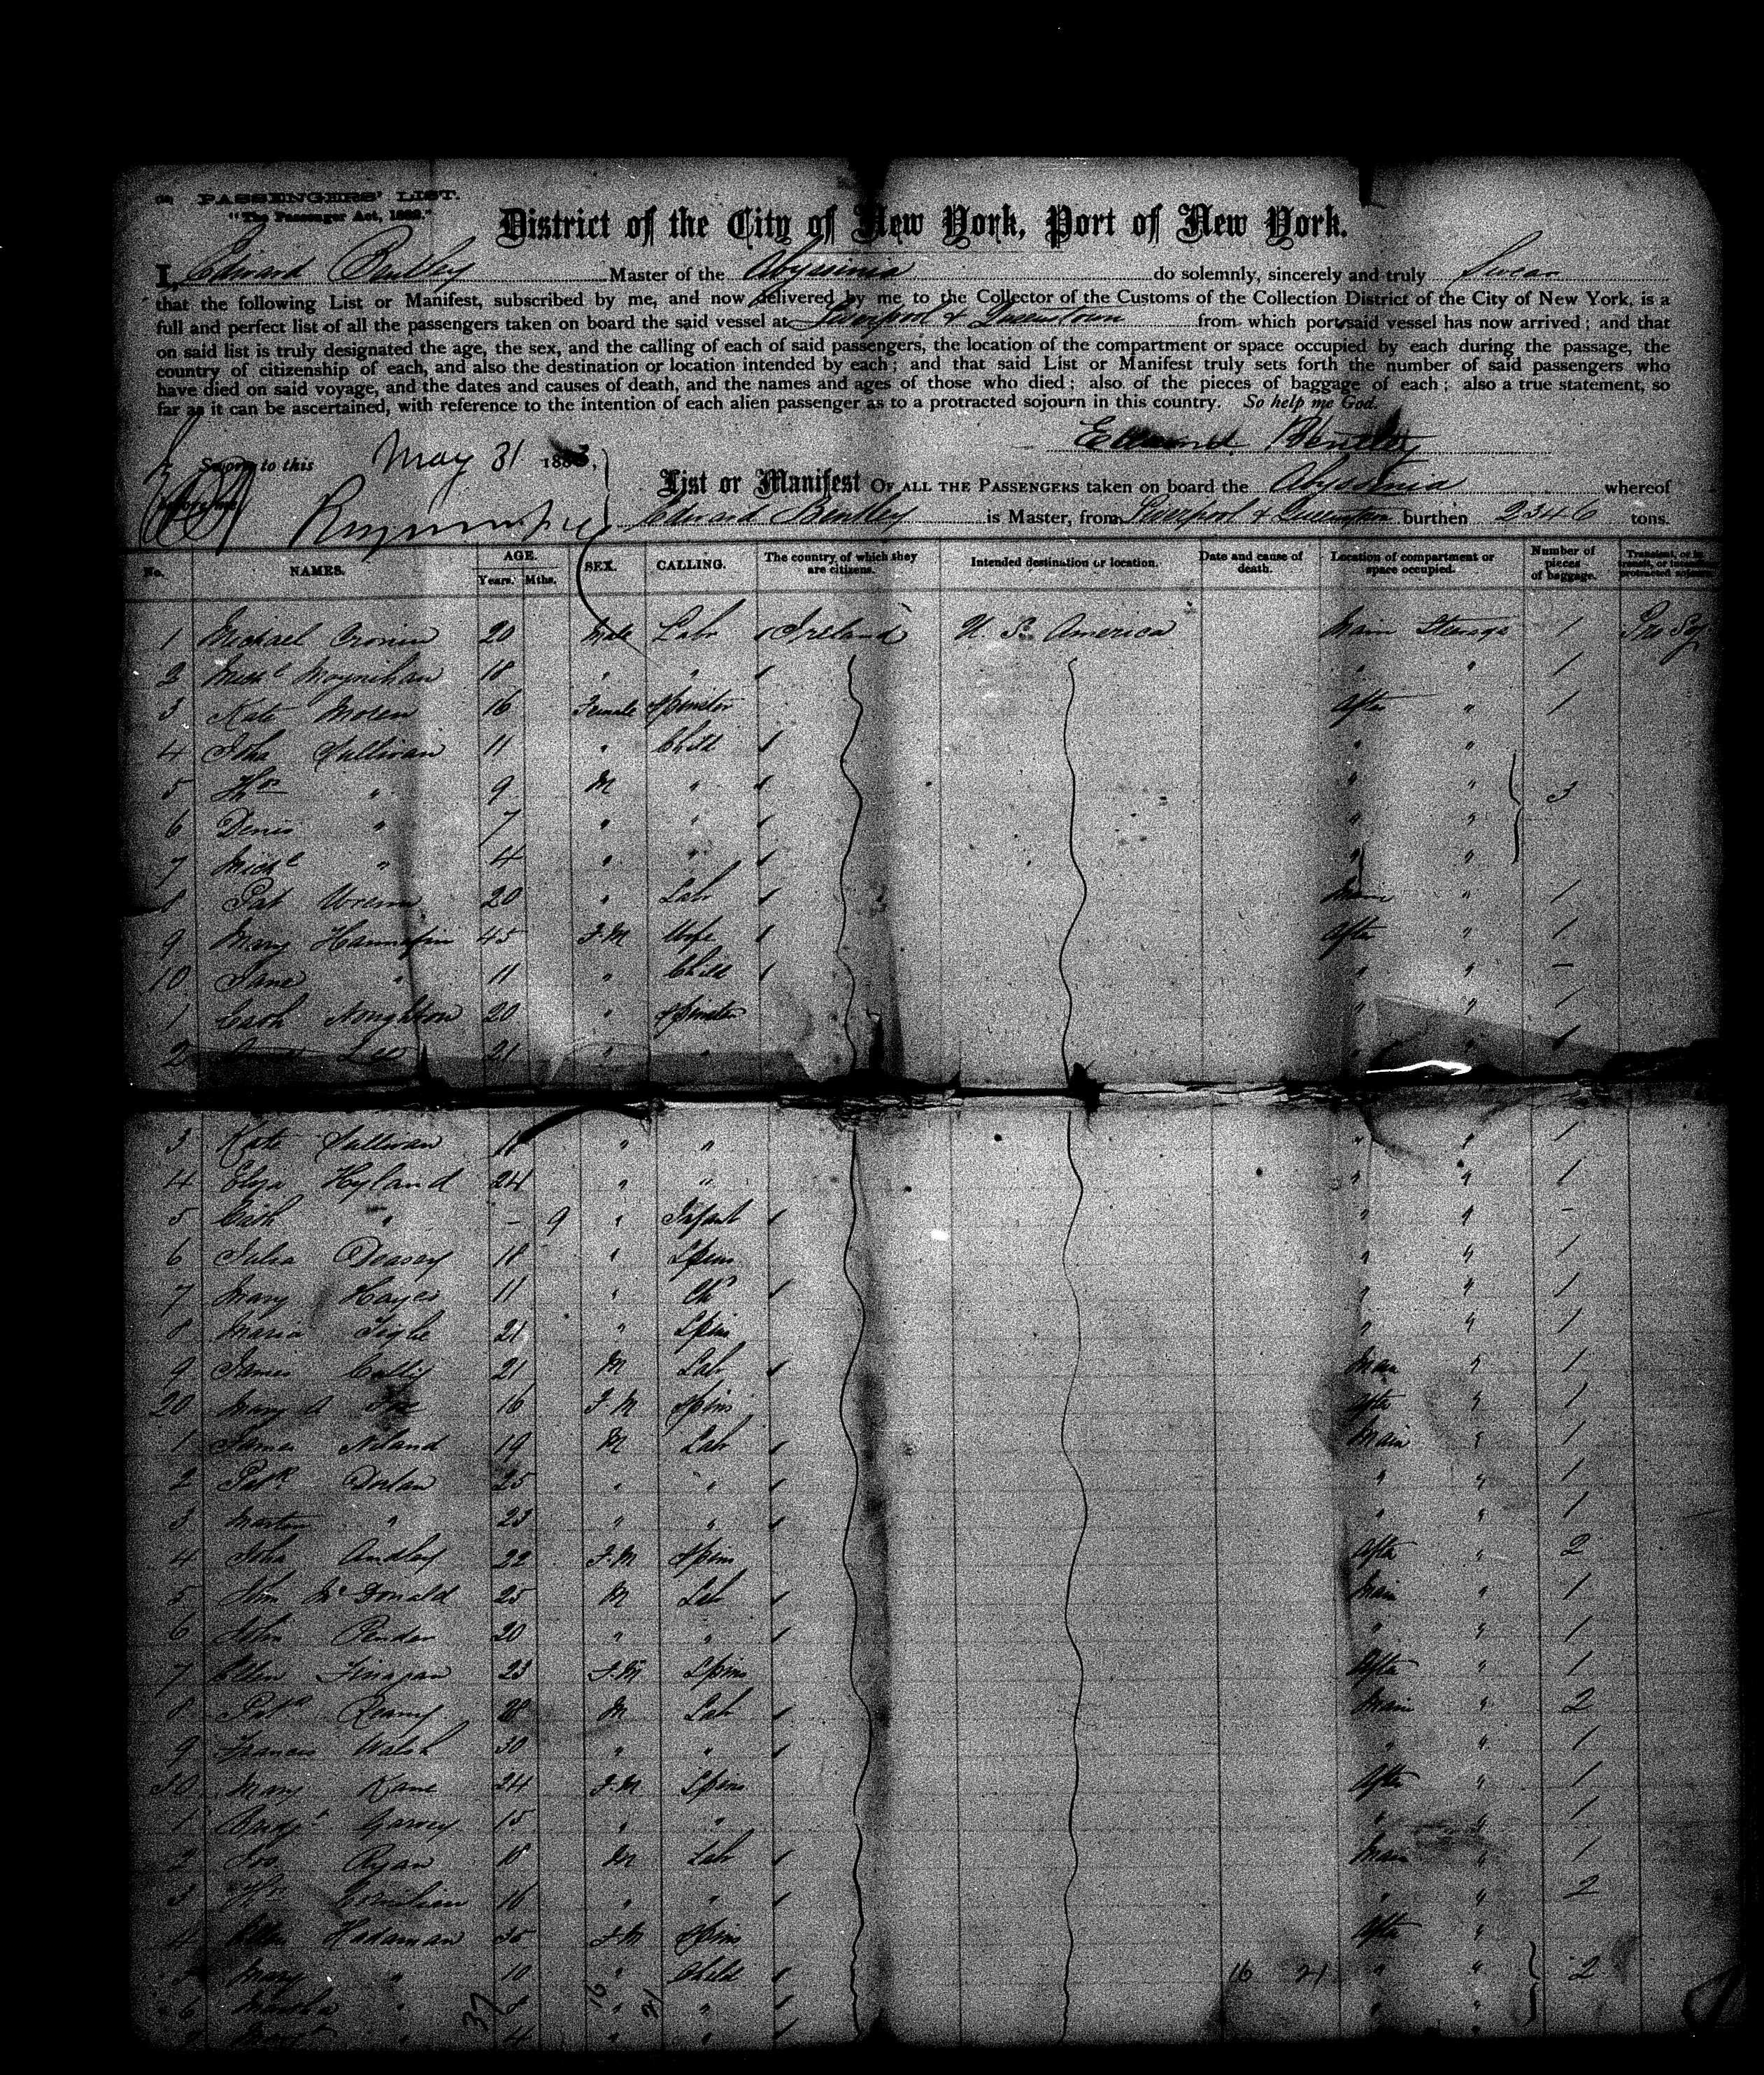 PASSENGERS' LIST.
"The Passenger Act, 1882."
District of the City of New York, Port of New York.
I, Edward Bentley Master of the Abyssinia do solemnly, sincerely and truly Swear
that the following List or Manifest, subscribed by me, and now delivered by me to the Collector of the Customs of the Collection District of the City of New York, is a
full and perfect list of all the passengers taken on board the said vessel at Liverpool & Queenstown from which port said vessel has now arrived; and that
on said list is truly designated the age, the sex, and the calling of each of said passengers, the location of the compartment or space occupied by each during the passage, the
country of citizenship of each, and also the destination or location intended by each; and that said List or Manifest truly sets forth the number of said passengers who
have died on said voyage, and the dates and causes of death, and the names and ages of those who died; also of the pieces of baggage of each; also a true statement, so
far as it can be ascertained, with reference to the intention of each alien passenger as to a protracted sojourn in this country. So help me God.
Edward Bentley
Sworn to this May 31 188
List or Manifest OF ALL THE PASSENGERS taken on board the Abyssinia whereof
Edward Bentley is Master, from Liverpool & Queenstown burthen 2346 tons.
No. NAMES. AGE. Years. Mths. SEX. CALLING. The country of which they are citizens. Intended destination or location. Date and cause of death. Location of compartment or space occupied. Number of pieces of baggage.
1 Michael Cronin 20 Male Labr Ireland U. S. America Main Steerage 1
2 Michl Moynihan 18 " " " " 1
3 Kate Moren 16 Female Spinster After " 1
4 Joha Sullivan 11 " Child " "
5 Thos " 9 M " " " 3
6 Denis " 7 " " " "
7 Michl " 4 " " " "
8 Pat Wrenn 20 " Labr Main " 1
9 Mary Hannafin 45 F.M Wife After " 1
10 Jane " 11 " Child " " -
1 Cath Noughton 20 " Spinster " " 1
2 Lee 21 " " " " 1
3 Kate Sullivan " " " " 1
4 Eliza Hyland 24 " " " " 1
5 Cath " - 9 " Infant " " -
6 Julia Deasey 18 " Spins " " 1
7 Mary Hayes 11 " Chd " " 1
8 Maria Tighe 21 " Spins " " 1
9 James 21 M Lab Main " 1
20 Mary A Fox 16 F M Spins After " 1
1 James Niland 19 M Lab Main " 1
2 Patk Dorlan 25 " " " " 1
3 Martin " 23 " " " " 1
4 Joha Andley 22 F.M Spins After " 2
5 John McDonald 25 M Lab Main " 1
6 John Pender 20 " " " " 1
7 Ellen Finagan 23 F.M Spins After " 1
8 Patk Reamy 28 M Lab Main " 2
9 Francis Walsh 30 " " " " 1
30 Mary Kane 24 F.M Spins After " 1
1 Bridgt Garvey 15 " " " " 1
2 Jos Ryan 18 M Lab Main " 1
3 16 " " " " 2
4 Ellen Hadaman 35 F.M Spins After "
5 Mary " 10 " Child 16 21 " " 2
6 Martha " 8 " " " "
7 Margt " 4 " " " "
37 16 21